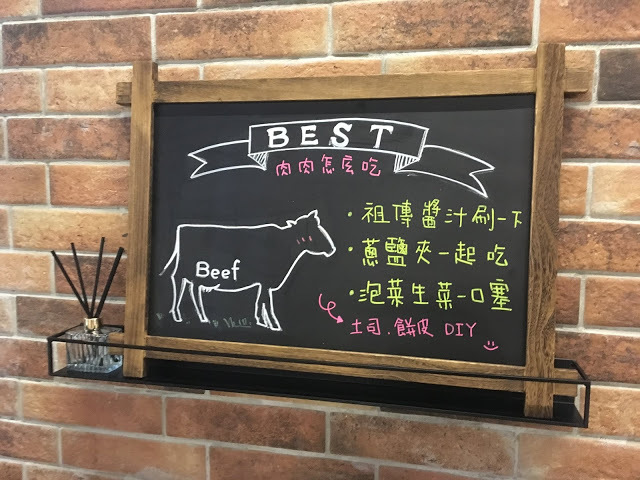 BEST
肉肉怎麼吃
·祖傳醬汁刷一下
·蔥鹽夾一起吃
·泡菜生菜一口塞
土司.餅皮 DIY
Beef